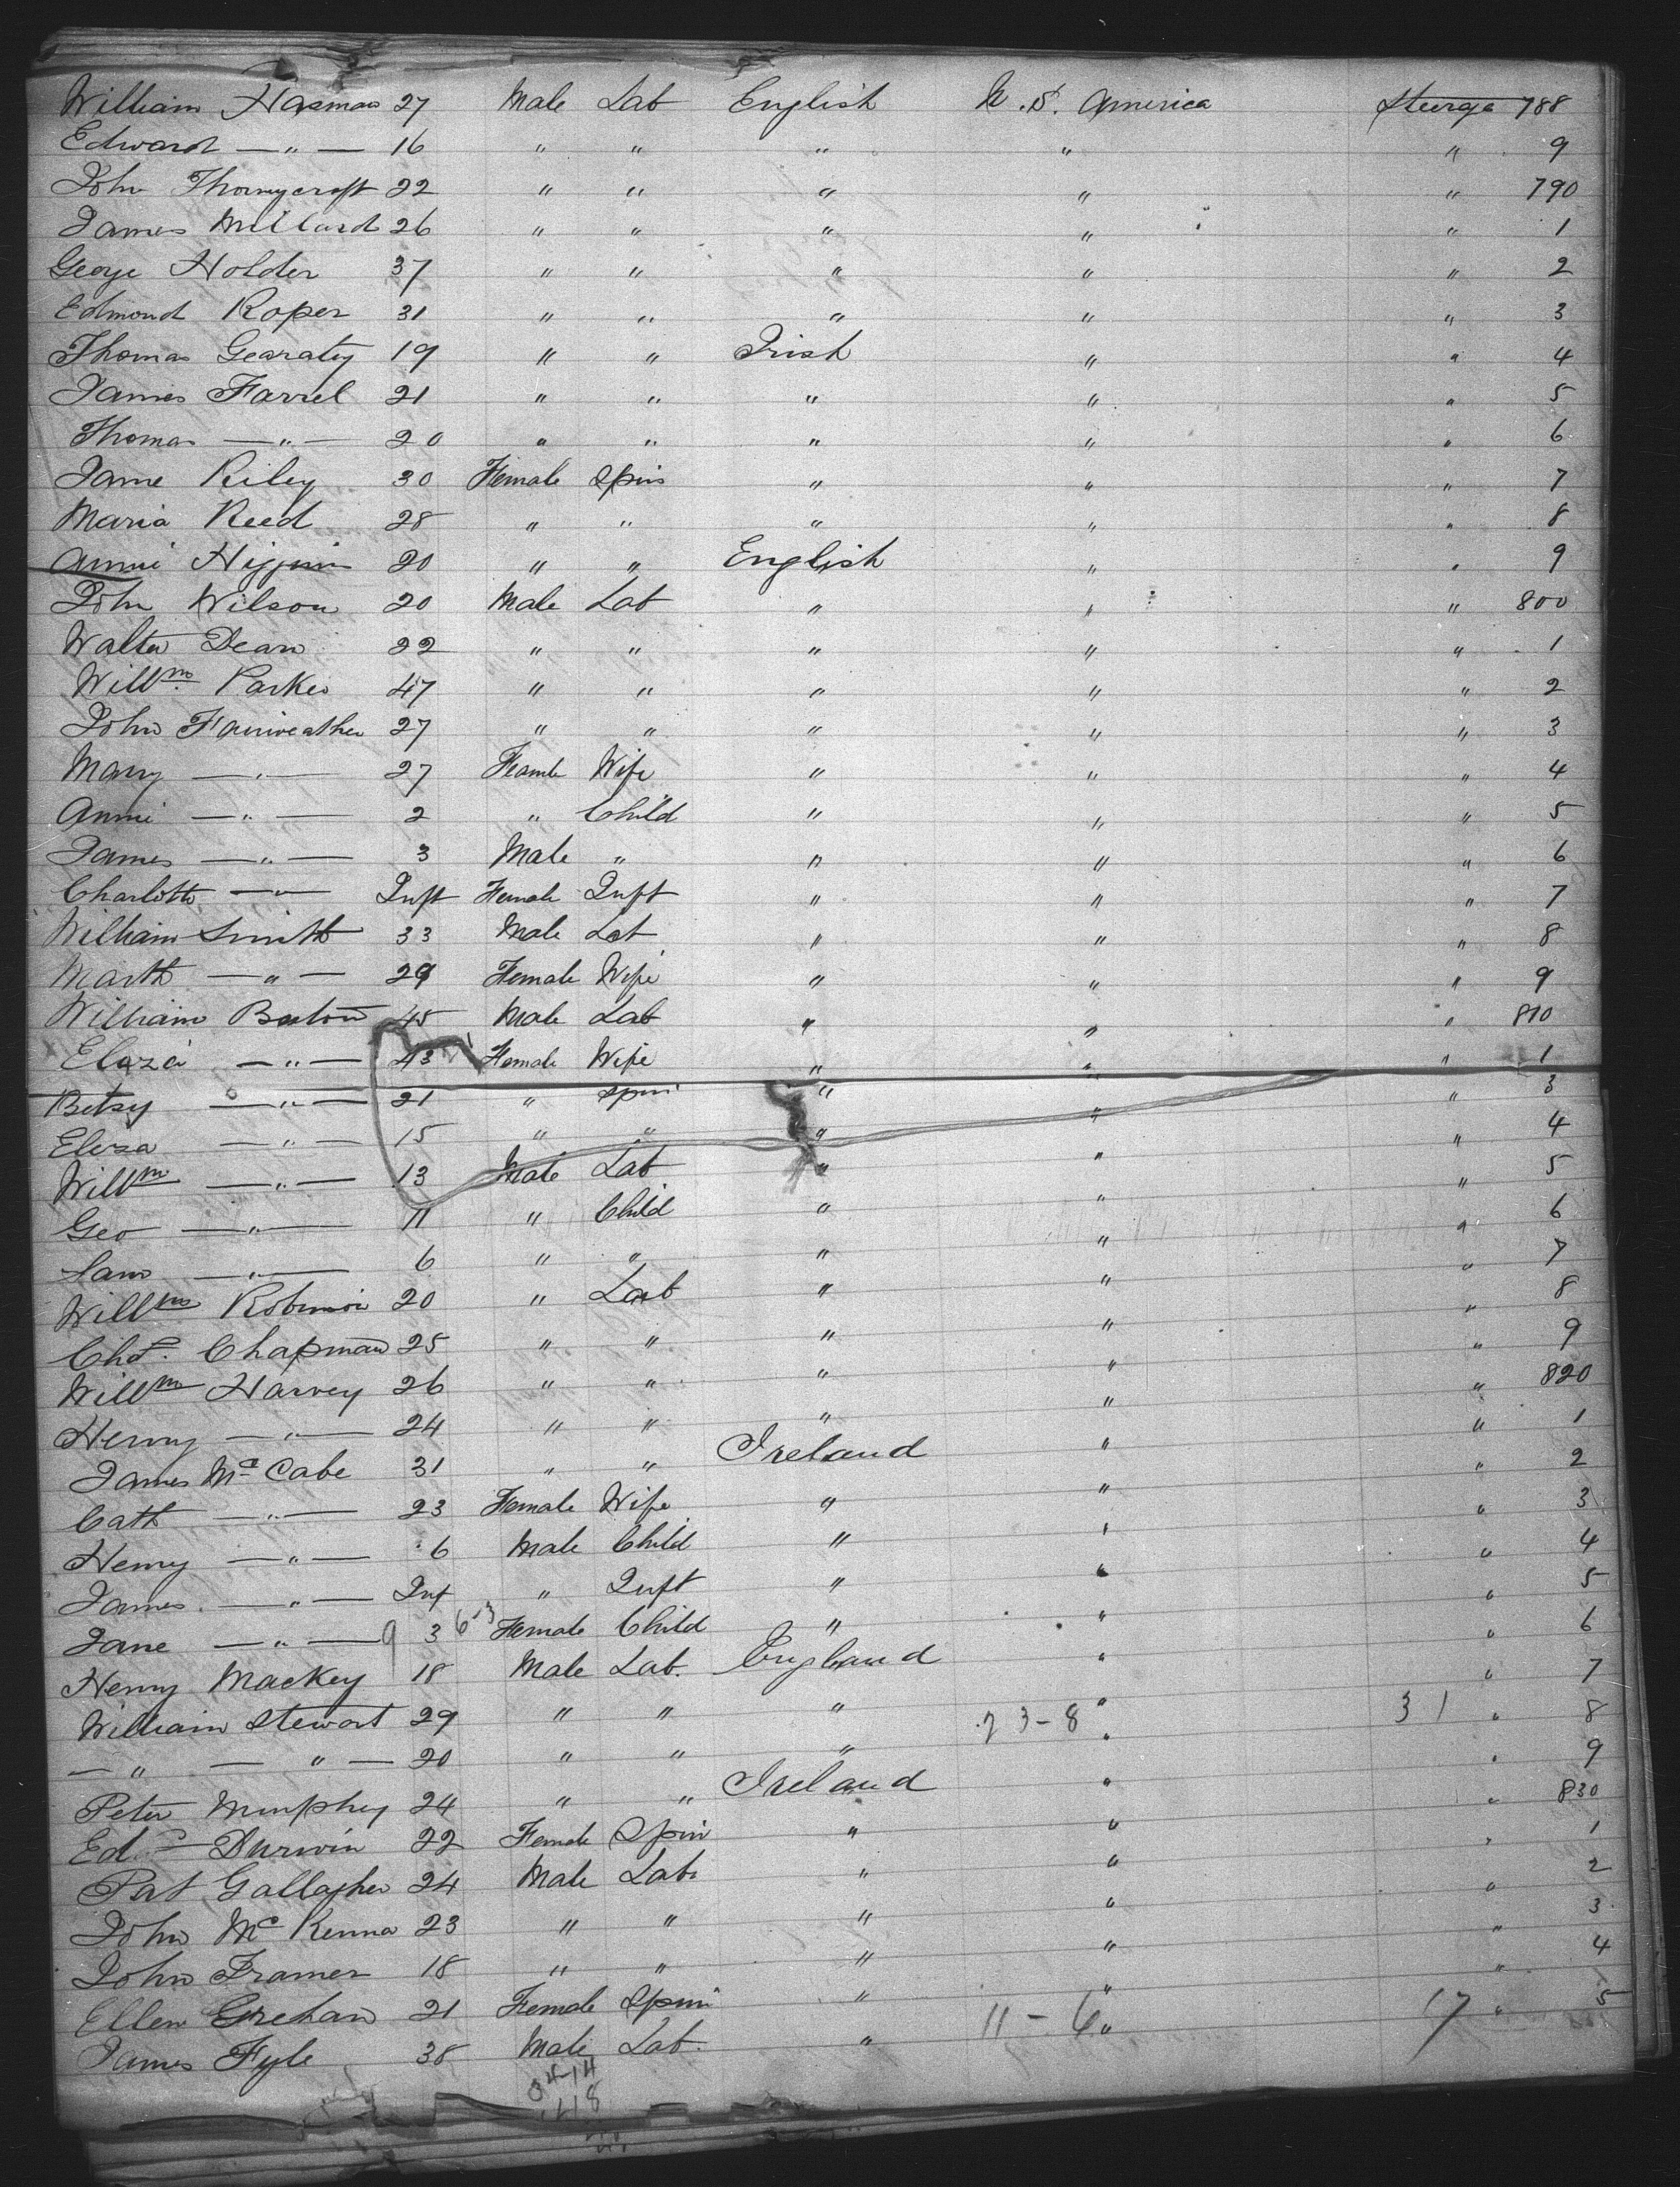 William Hasman 27 Male Lab English U.S. America Steerge 788
Edward — " — 16 " " " " " 9
John Thornycroft 22 " " " " " 790
James Millard 26 " " " " " 1
George Holder 37 " " " " " 2
Edmond Roper 31 " " " " " 3
Thomas Gearaty 19 " " Irish " " 4
James Farrel 21 " " " " " 5
Thomas — " — 20 " " " " " 6
Jane Riley 30 Female Spin " " " 7
Maria Reed 28 " " " " " 8
Annie Higgins 20 " " English " " 9
John Wilson 20 Male Lab " " " 800
Walter Dean 22 " " " " " 1
Willm Parker 47 " " " " " 2
John Fairweather 27 " " " " " 3
Mary — " — 27 Feamle Wife " " " 4
Annie — " — 2 " Child " " " 5
James — " — 3 Male " " " " 6
Charlotte — " — Inft Female Inft " " " 7
William Smith 33 Male Lab " " " 8
Marth — " — 29 Female Wife " " " 9
William Barton 45 Male Lab " " " 810
Eliza — " — 43 Female Wife " " " 1
Betsy — " — 21 " Spin " " " 3
Eliza — " — 15 " " " " " 4
Willm — " — 13 Male Lab " " " 5
Geo — " — 11 " Child " " " 6
Sam — " — 6 " " " " " 7
Willm Robinson 20 " Lab " " " 8
Chs. Chapman 25 " " " " " 9
Willm Harvey 26 " " " " " 820
Henry — " — 24 " " " " " 1
James Mc Cabe 31 " " Ireland " " 2
Cath — " — 23 Female Wife " " " 3
Henry — " — 6 Male Child " " " 4
James — " — Inf " Inft " " " 5
Jane — " — 9 3 6-3 Female Child " " " 6
Henry Mackey 18 Male Lab. England " " 7
William Stewart 29 " " " 23-8 " 31 " 8
— " — " — 20 " " " " " 9
Peter Murphey 24 " " Ireland " " 830
Edd Durwin 22 Female Spin " " " 1
Pat Gallagher 24 Male Lab. " " " 2
John Mc Kenna 23 " " " " " 3
John Framer 18 " " " " " 4
Ellen Grehan 21 Female Spin " " " 5
James Fyle 38 Male Lab. " 11-6 " 17